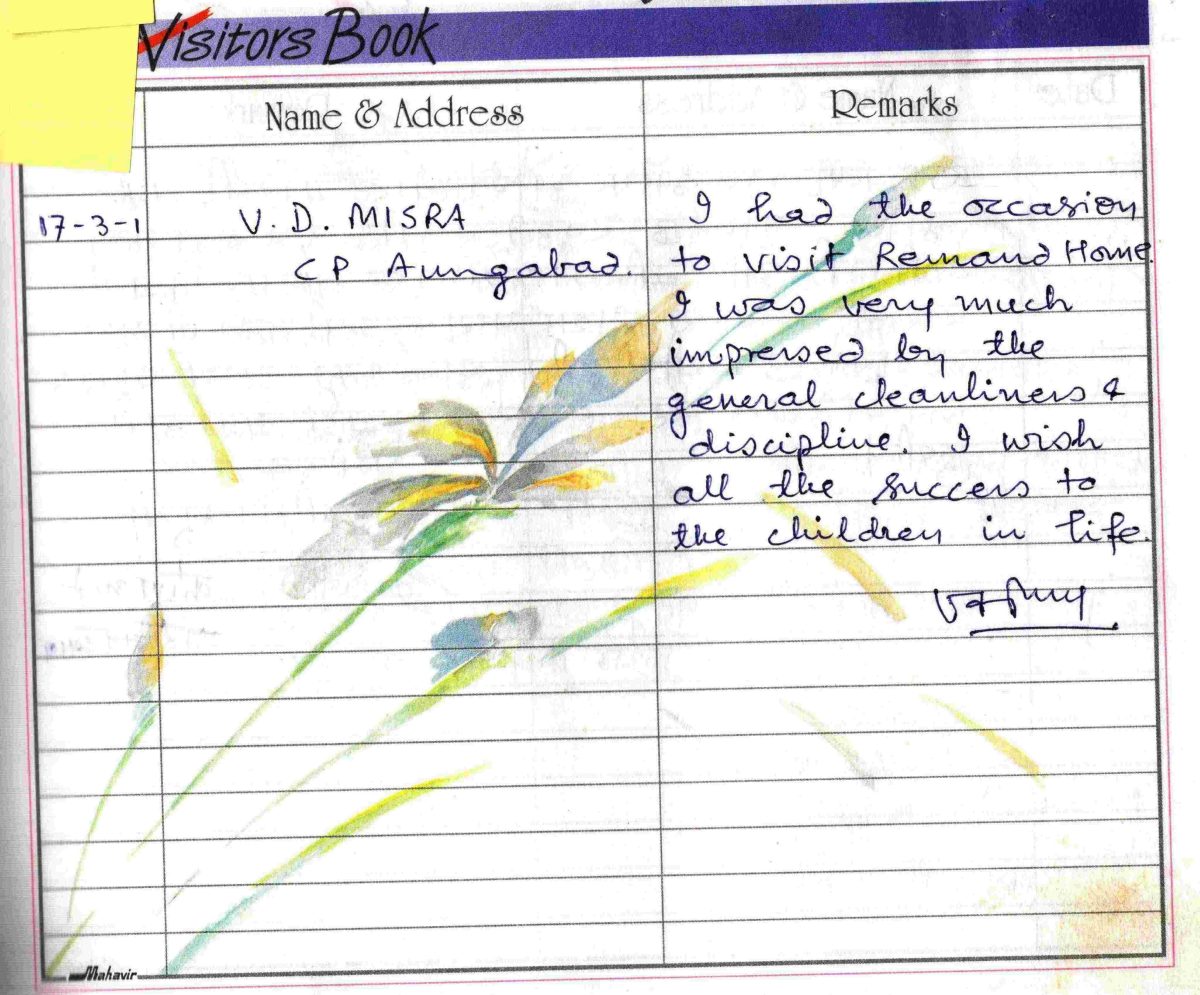 Visitors Book
Name & Address
Remarks
17-3-1
V. D. MISRA
CP Aurngabad.
I had the occasion
to visit Remand Home.
I was very much
impressed by the
general cleanliness &
discipline. I wish
all the success to
the children in life.
Mahavir